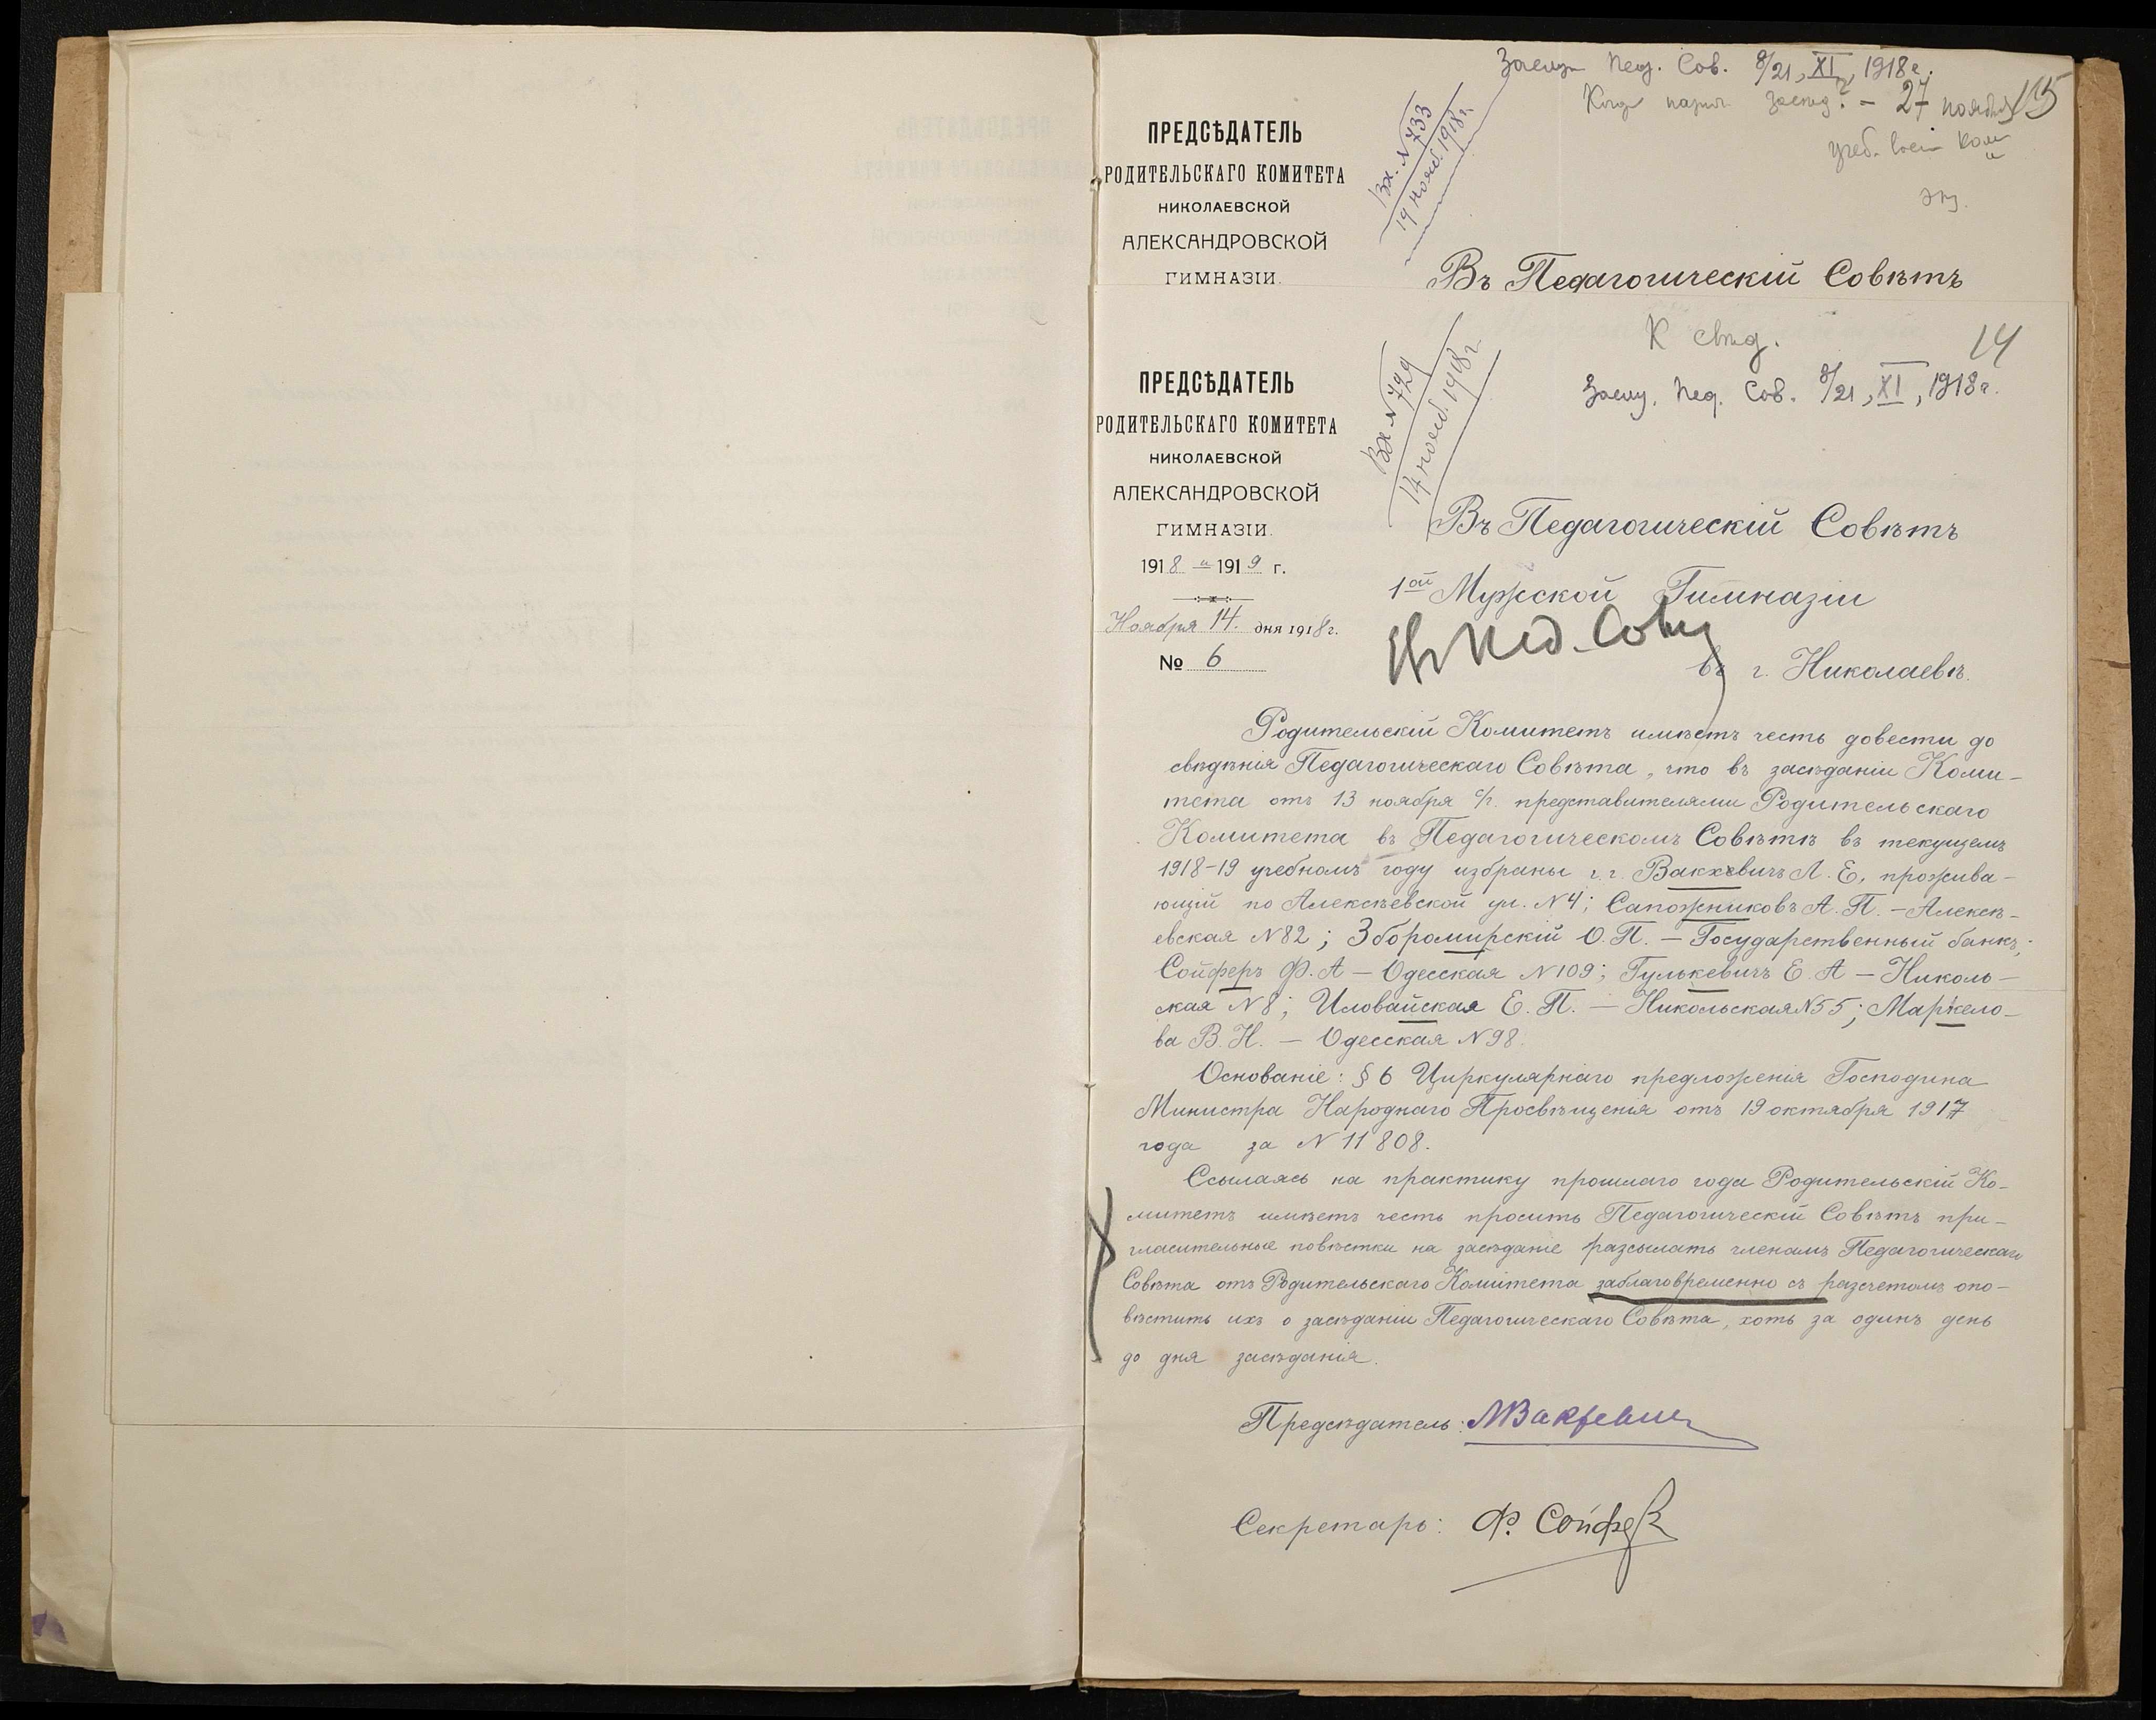 Пед. Сов. 8/21, XI, 1918 г.
27 ноября 15
ПРЕДСѢДАТЕЛЬ
РОДИТЕЛЬСКАГО КОМИТЕТА
НИКОЛАЕВСКОЙ
АЛЕКСАНДРОВСКОЙ
ГИМНАЗІИ.
Вх. N 733
19 нояб. 1918 г.
Въ Педагогическій Совѣтъ
К свѣд.
14
Пед. Сов. 8/21, XI, 1918 г.
ПРЕДСѢДАТЕЛЬ
РОДИТЕЛЬСКАГО КОМИТЕТА
НИКОЛАЕВСКОЙ
АЛЕКСАНДРОВСКОЙ
ГИМНАЗІИ.
1918 – 1919 г.
Ноября 14. дня 1918 г.
№ 6
Вх N 729
14 нояб. 1918 г.
Въ Педагогическій Совѣтъ
1ой Мужской Гимназіи
въ г. Николаевѣ.
Родительскій Комитетъ имѣетъ честь довести до
свѣдѣнія Педагогическаго Совѣта, что въ засѣданіи Коми-
тета отъ 13 ноября с/г. представителями Родительскаго
Комитета въ Педагогическомъ Совѣтѣ въ текущемъ
1918-19 учебномъ году избраны г.г. Вакхевичъ Л. Е, прожива-
ющій по Алексѣевской ул. N 4; Сапожниковъ А. П. – Алексѣ-
евская N 82; Зборомирскій О. П. – Государственный банкъ;
Сойферъ Ф. А – Одесская N 109; Гулькевичъ Е. А – Николь-
ская N 8; Иловайская Е. П. – Никольская N 55; Маркело-
ва В. Н. – Одесская N 98.
Основаніе: § 6 Циркулярнаго предложенія Господина
Министра Народнаго Просвѣщенія отъ 19 октября 1917
года за N 11808.
Ссылаясь на практику прошлаго года Родительскій Ко-
митетъ имѣетъ честь просить Педагогическій Совѣтъ при-
гласительные повѣстки на засѣданіе разсылать членамъ Педагогическаго
Совѣта отъ Родительскаго Комитета заблаговременно съ разсчетомъ опо-
вѣстить ихъ о засѣданіи Педагогическаго Совѣта, хоть за одинъ день
до дня засѣданія.
Предсѣдатель: ЛВакхевич
Секретарь: Ф. Сойфер